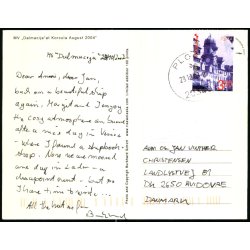 MV „Dalmacija" at Korcula August 2004
MS "Dalmacija"
Dear Amos, dear Jan,
back on a beautiful ship
again. Margit and I enjoy
the cosy atmosphere on board
after a nice day in Venice
- where I found a shipbook-
shop. Now we are moored
one day in
disappointment - but so
I have time to write.
All the best as for
PLO
AMOS OG JAN VINTHER
CHRISTENSEN
LANDLYSTVEJ 87
DK 2650 HVIDOVRE
DANMARK